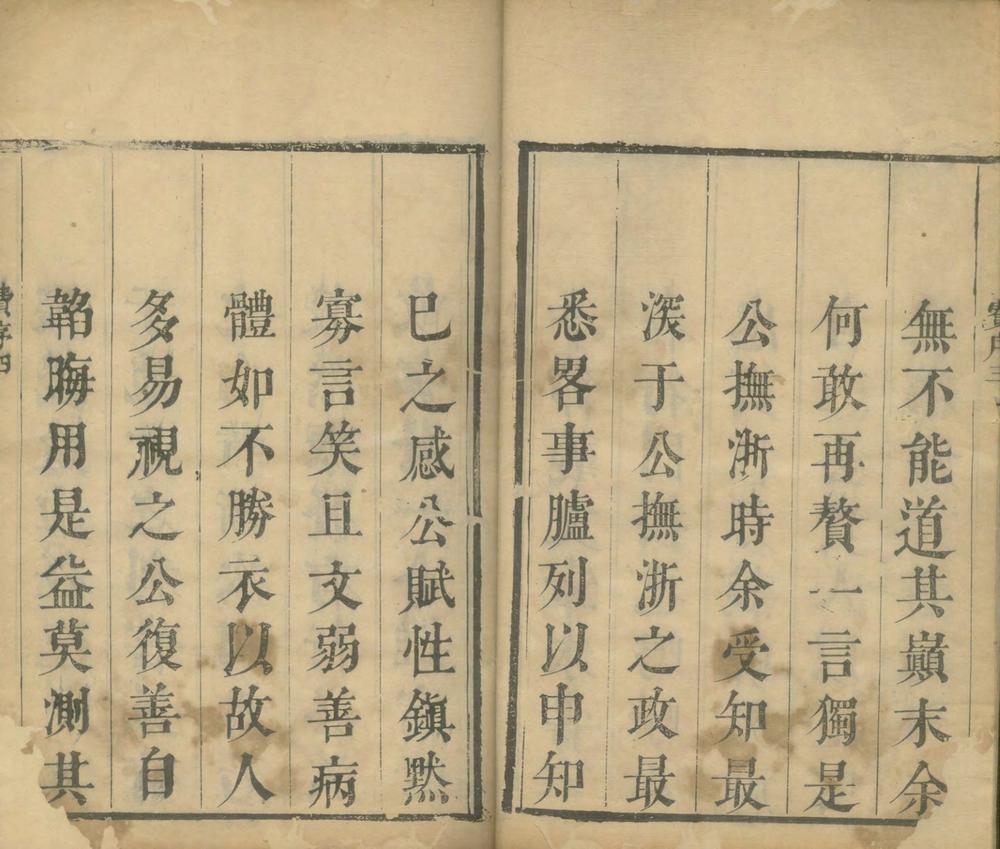 無不能道其巔末余
何敢再贅一言獨是
公撫浙時余受知最
深于公撫浙之政最
悉畧事臚列以申知
巳之感公賦性鎮黙
寡言笑且文弱善病
體如不勝衣以故人
多易視之公復善自
韜晦用是益莫測其
序四